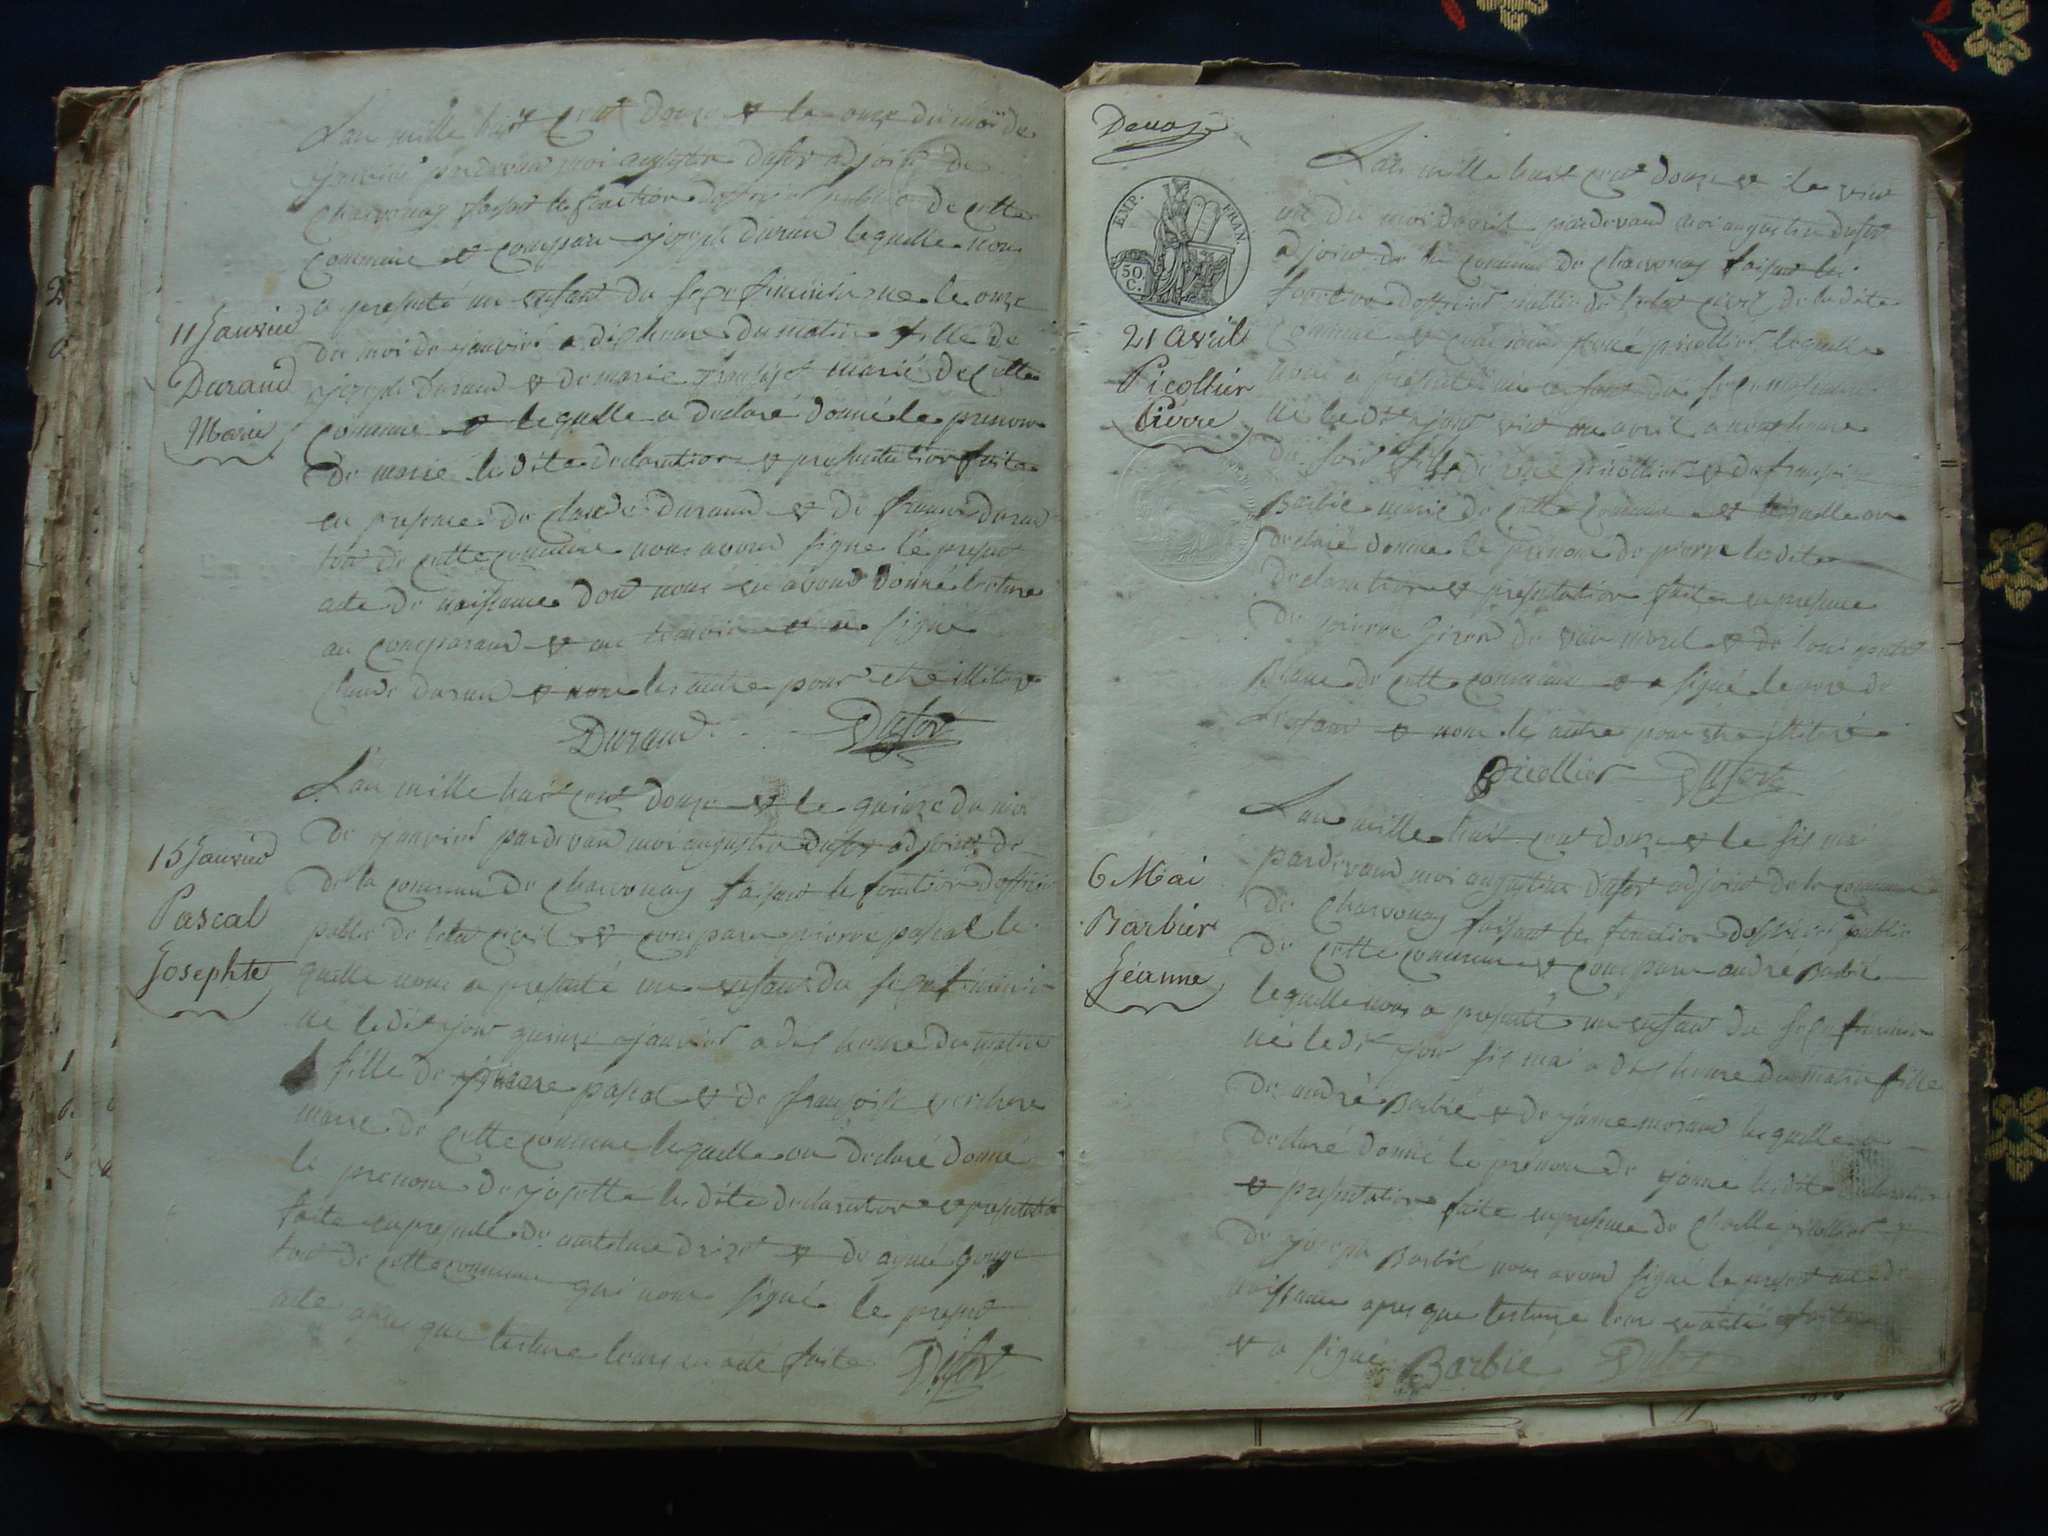 L'an mille huit cent douze et le onze du moi de
janvier pardevan moi augustin dufor adjoint de
Charvonay faisant le fonction dofficier public de cette
commune et compare joseph Duran lequelle nou
a presenté un enfant du sexe feminin ne le onze
11 Janvier
Durand
Marie
du moi de janvier a dix heure du matin fille de
joseph Durand et de marie marié de cette
commune et lequelle a declaré donné le prenom
de marie ledite declaration et presentation faite
en presence de claude Durand et de Durand
tou de cette commune nous avond signe le present
acte de naissance dont nous en avond donné lecture
au comparand et au temoin et a signé
claude duran et non les autre pour etre illitere
Durand Dufor
L'an mille huit cent douze et le quinze du moi
de janvier pardevan moi augustin dufor adjoint de
de la commune de Charvonay faisant le fonction dofficier
public de letat civil et compare pierre pascal le
15 Janvier
Pascal
Josephte
quelle nous a presenté un enfant du sexe feminin
ne ledit jour quinze janvier a dix heure du matin
fille de pierre pascal et de françoise
marie de cette commune lequelle on declaré donné
le prenom de josette ledite declaration et presentation
faite en presence de et de aymé
tou de cette commune qui nous signé le present
acte apres que lecture leurs en a été faite Dufor
EMP. FRAN.
50 C.
L'an mille huit cent douze et le vint
un du moi davril pardevand moi augustin dufor
adjoint de la commune de Charvonay faisant les
fonction dofficier public de letat civil de ladite
commune et compare pierre picollier lequelle
21 avril
Picollier
Pierre
nous a presenté un enfant du sexe masculin
né ledit jour vint un avril a neuf heure
du soir fils de pierre picollier et de françoise
Barbie marié de cette commune et lequelle on
declaré donné le prenom de pierre ledite
declaration et presentation faite en presence
de pierre de morel et de loui petit
de cette commune et a signé le pere de
lenfant et non les autre pour etre illitéré
Picollier Dufor
L'an mille huit cent douze et le sis mai
pardevand moi augustin dufor adjoint de la commune
de Charvonay faisant les fonction dofficier public
de cette commune et compare andré Barbié
6 Mai
Barbier
Jéanne
lequelle nous a presenté un enfant du sexe feminin
né ledit jour sis mai a dix heure du matin fille
de andré Barbié et de janne morand lequelle a
declaré donné le prénom de janne ledite declaration
et presentation faite en presence de Charle picollier et
de joseph Barbié nous avond signé le present acte de
naissance apres que lecture leur en a été faite
et a signé Barbié Dufor